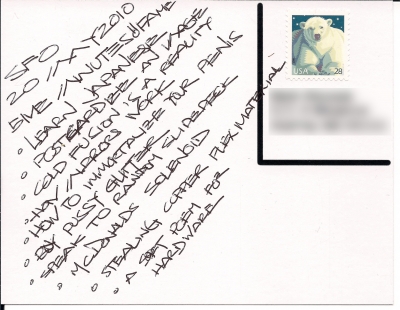 SFO
20 // MAY 2010
FIVE //NNUTESOFFAME
• LEARN JAPANESE
• POSTCARDIZE AN IMAGE
• COLD FUSION IS A REALITY
• HOW //APROPS WORK
• HOW TO IMMORTALIZE YOUR PENIS
• BUY PUSSY GLITTER
• SPEAK TO RANDOM
• MCDONALDS SOLENOID
• STEALING COPPER FLEXI MATERIAL
• A SOFT POEM FOR
HARDWARE
USA 28